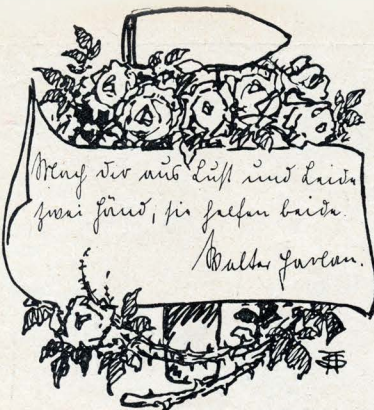 Mach dir aus Lust und Leide
zwei Händ, sie helfen beide.
Walter Harlan.